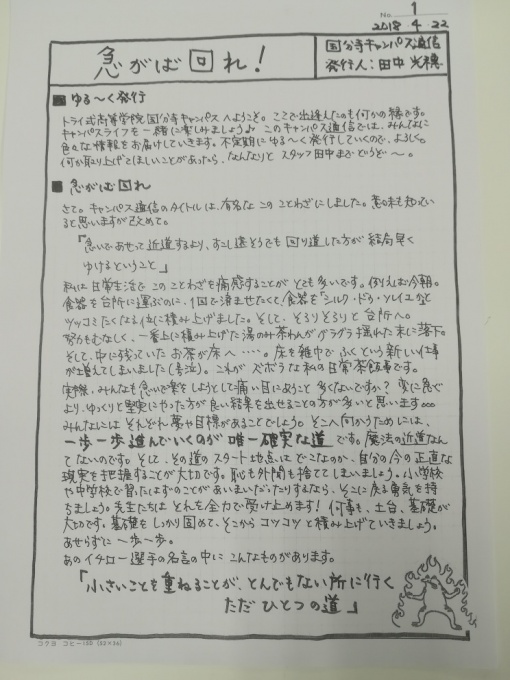 No. 1
2018 4 22
急がば回れ!
国分寺キャンパス通信
発行人:田中光穂
■ ゆる~く発行
トライ式高等学院国分寺キャンパスへようこそ。ここで出逢えたのも何かの縁です。
キャンパスライフを一緒に楽しみましょう♪ このキャンパス通信では、みんなに
色々な情報をお届けしていきます。不定期にゆる~く発行していくので、よろしく。
何か取り上げてほしいことがあったら、なんなりとスタッフ田中までどうぞ~。
■ 急がば回れ
さて。キャンパス通信のタイトルは、有名なこのことわざにしました。意味も知っている
と思いますが改めて。
「急いであせって近道するより、すこし遠そうでも回り道した方が結局早く
ゆけるということ」
私は日常生活でこのことわざを痛感することがとても多いです。例えば今朝。
食器を台所に運ぶのに、1回で済ませたくて、食器を“シルク・ドゥ・ソレイユかな”と
ツッコミたくなる位に積み上げました。そして、そろりそろりと台所へ。
努力もむなしく、一番上に積み上げた湯のみ茶わんがグラグラ揺れた末に落下。
そして、中に残っていたお茶が床へ……。床を雑巾でふくという新しい仕事
が増えてしまいました(号泣)。これがズボラな私の日常茶飯事です。
実際、みんなも急いで楽をしようとして痛い目にあうこと多くないですか?変に急ぐ
より、ゆっくりと堅実にやった方が良い結果を出せることの方が多いと思います。。。
みんなにはそれぞれ夢や目標があることでしょう。そこへ向かうためには、
一歩一歩進んでいくのが唯一確実な道です。魔法の近道なん
てないのです。そして、その道のスタート地点はどこなのか、自分の今の正直な
現実を把握することが大切です。恥も外聞も捨ててしまいましょう。小学校
や中学校で習ったはずのことがあいまいだったりするなら、そこに戻る勇気を持
ちましょう。先生たちはそれを全力で受け止めます!何事も、土台、基礎が
大切です。基礎をしっかり固めて、そこからコツコツと積み上げていきましょう。
あせらずに一歩一歩。
あのイチロー選手の名言の中にこんなものがあります。
「小さいことを重ねることが、とんでもない所に行く
ただひとつの道」
コクヨ